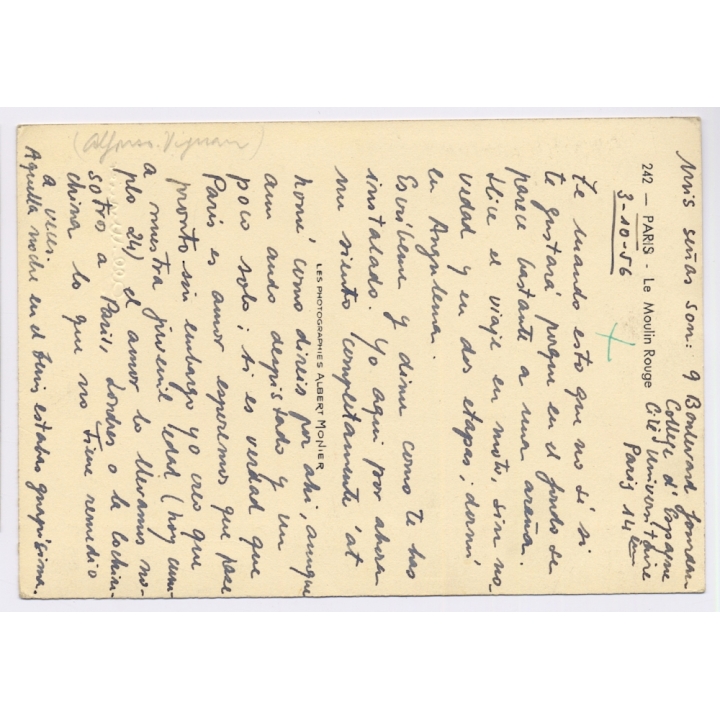 Mis señas son: 9 Boulevard Jourdan
College d'Espagne
Cité Universitaire
Paris 14 em
242 — PARIS - Le Moulin Rouge
3-10-56
Te mando esto que no sé si
te gustará porque en el fondo se
parece bastante a una araña.
Hice el viaje en moto, sin no-
vedad y en dos etapas; dormí
en Angulema.
Escríbeme y dime como te has
instalado. Yo aquí por ahora
me siento completamente "at
home", como direis por ahí, aunque
aun ando despistado y un
poco solo; si es verdad que
París es amor esperemos que pase
pronto sin embargo yo creo que
a nuestra juvenil edad (hoy cum-
plo 24) el amor lo llevamos no-
sotros a París, Londres o la Cochin-
china lo que no tiene remedio
a veces.
Aquella noche en el tenis estabas guapísima.
LES PHOTOGRAPHIES ALBERT MONIER
(Alfonso